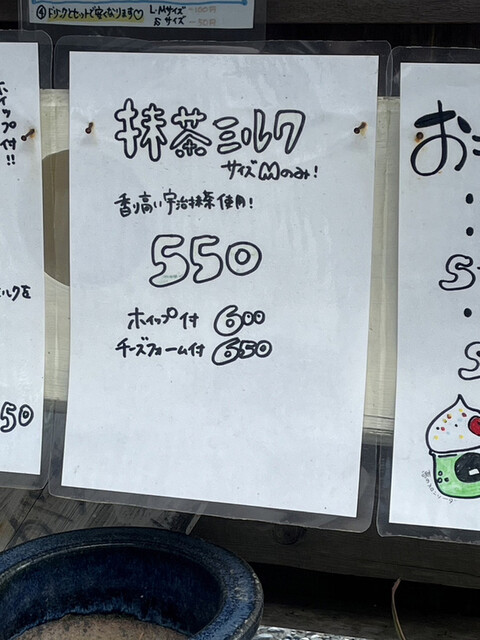 ④ドリンクとセットで安くなります♡ L・Mサイズ -100円
Sサイズ -50円
ホイップ付!!
ミルクを
50
抹茶ミルク
サイズMのみ!
香り高い宇治抹茶使用!
550
ホイップ付 600
チーズフォーム付 650
お
・
・
S
・
S